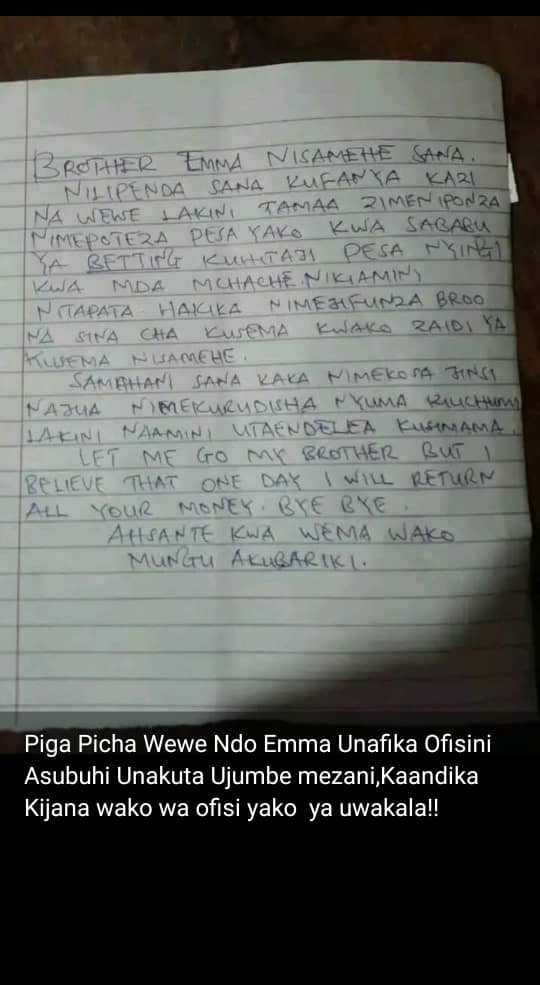 BROTHER EMMA NISAMEHE SANA.
NILIPENDA SANA KUFANYA KAZI
NA WEWE LAKINI TAMAA ZIMENIPONZA
NIMEPOTEZA PESA YAKO KWA SABABU
YA BETTING KUHITAJI PESA NYINGI
KWA MDA MCHACHE NIKIAMINI
NITAPATA HAKIKA NIMEJIFUNZA BROO
NA SINA CHA KUSEMA KWAKO ZAIDI YA
KUSEMA NISAMEHE.
SAMAHANI SANA KAKA NIMEKOSA JINSI
NAJUA NIMEKURUDISHA NYUMA KIUCHUMI
LAKINI NAAMINI UTAENDELEA KUSIMAMA.
LET ME GO MY BROTHER BUT I
BELIEVE THAT ONE DAY I WILL RETURN
ALL YOUR MONEY. BYE BYE.
AHSANTE KWA WEMA WAKO
MUNGU AKUBARIKI.
Piga Picha Wewe Ndo Emma Unafika Ofisini
Asubuhi Unakuta Ujumbe mezani,Kaandika
Kijana wako wa ofisi yako ya uwakala!!